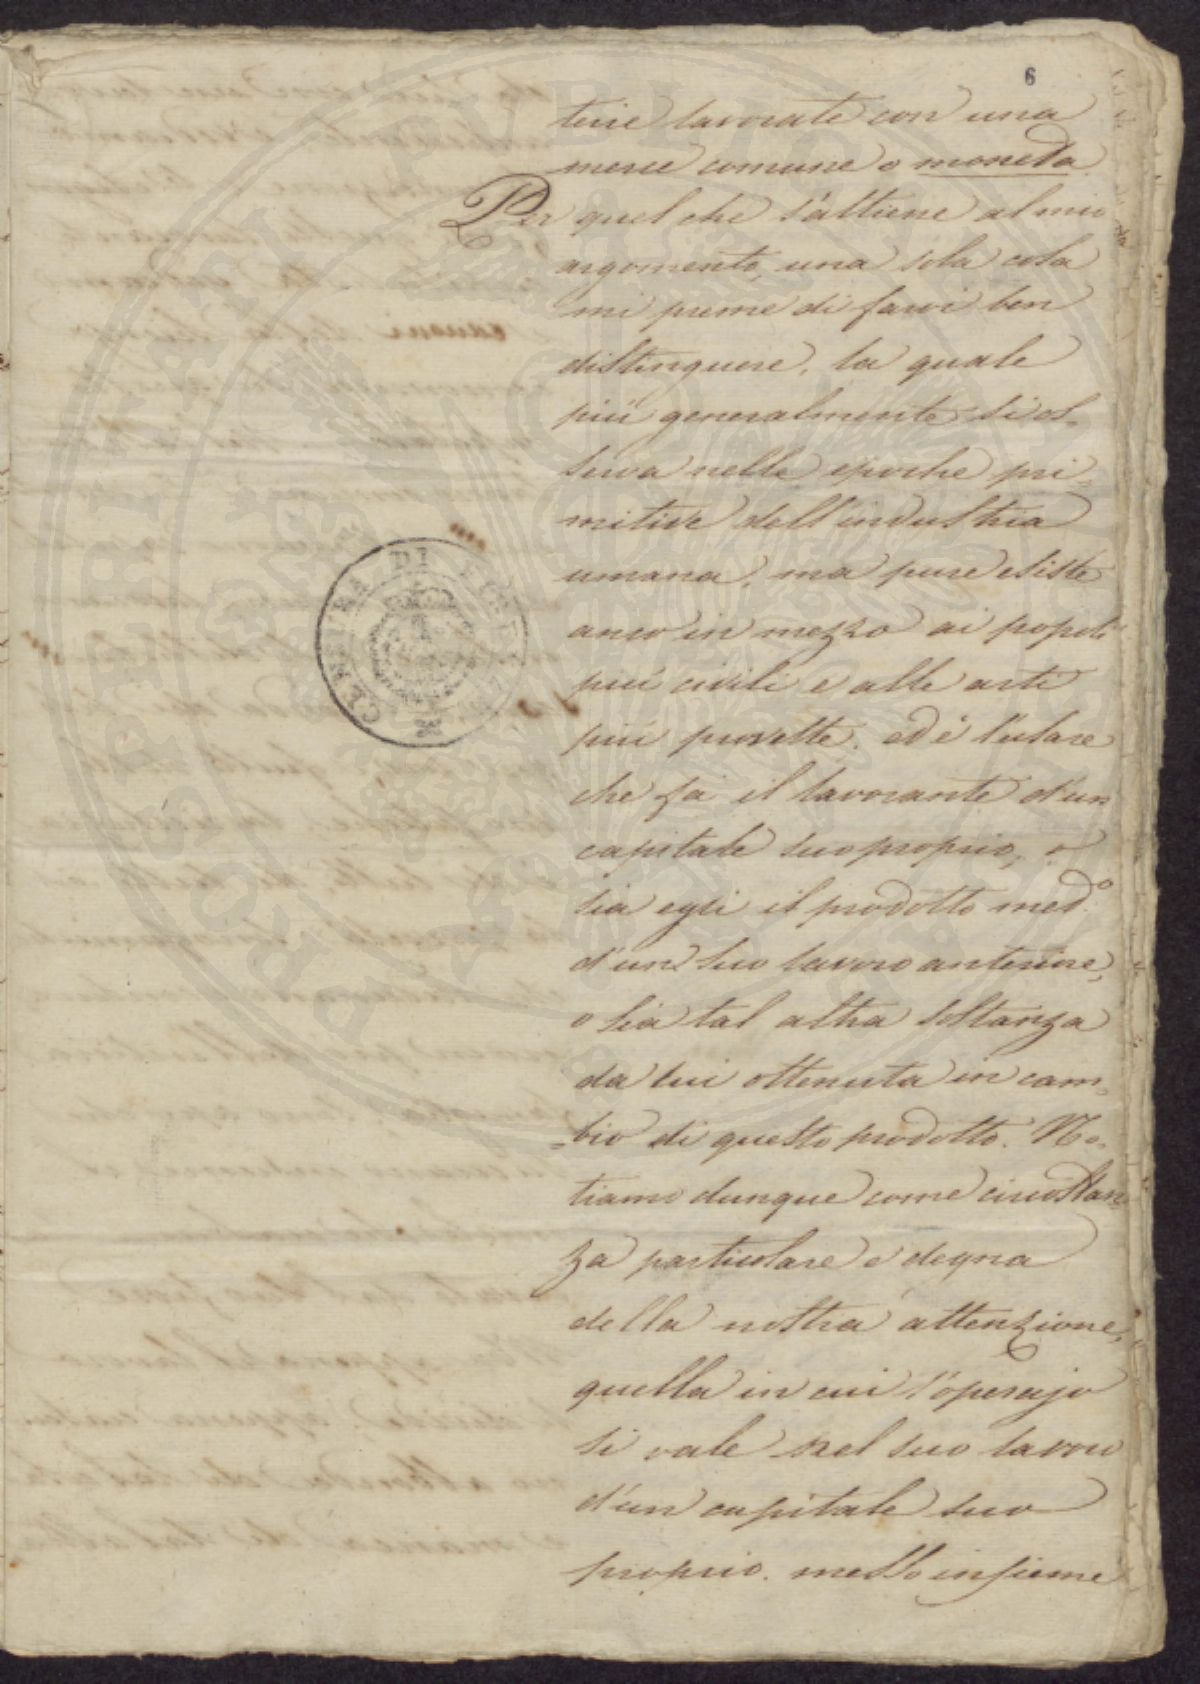 6
terie lavorate con una
merce comune o moneda.
Per quel che s'attiene al mio
argomento, una sola cosa
mi preme di farvi ben
distinguere, la quale
più generalmente si os-
serva nelle epoche pri-
mitive dell'industria
umana, ma pure esiste
anco in mezzo ai popoli
più civili e alle arti
più provette. ed è l'usare
che fa il lavorante d'un
capitale suo proprio, o
sia egli il prodotto med.o
d'un suo lavoro anteriore,
o sia tal altra sostanza
da lui ottenuta in cam-
-bio di questo prodotto. No-
tiamo dunque come circostan-
za particolare e degna
della nostra attenzione,
quella in cui l'operajo
si vale nel suo lavoro
d'un capitale suo
proprio. messo insieme
CENSURA DI